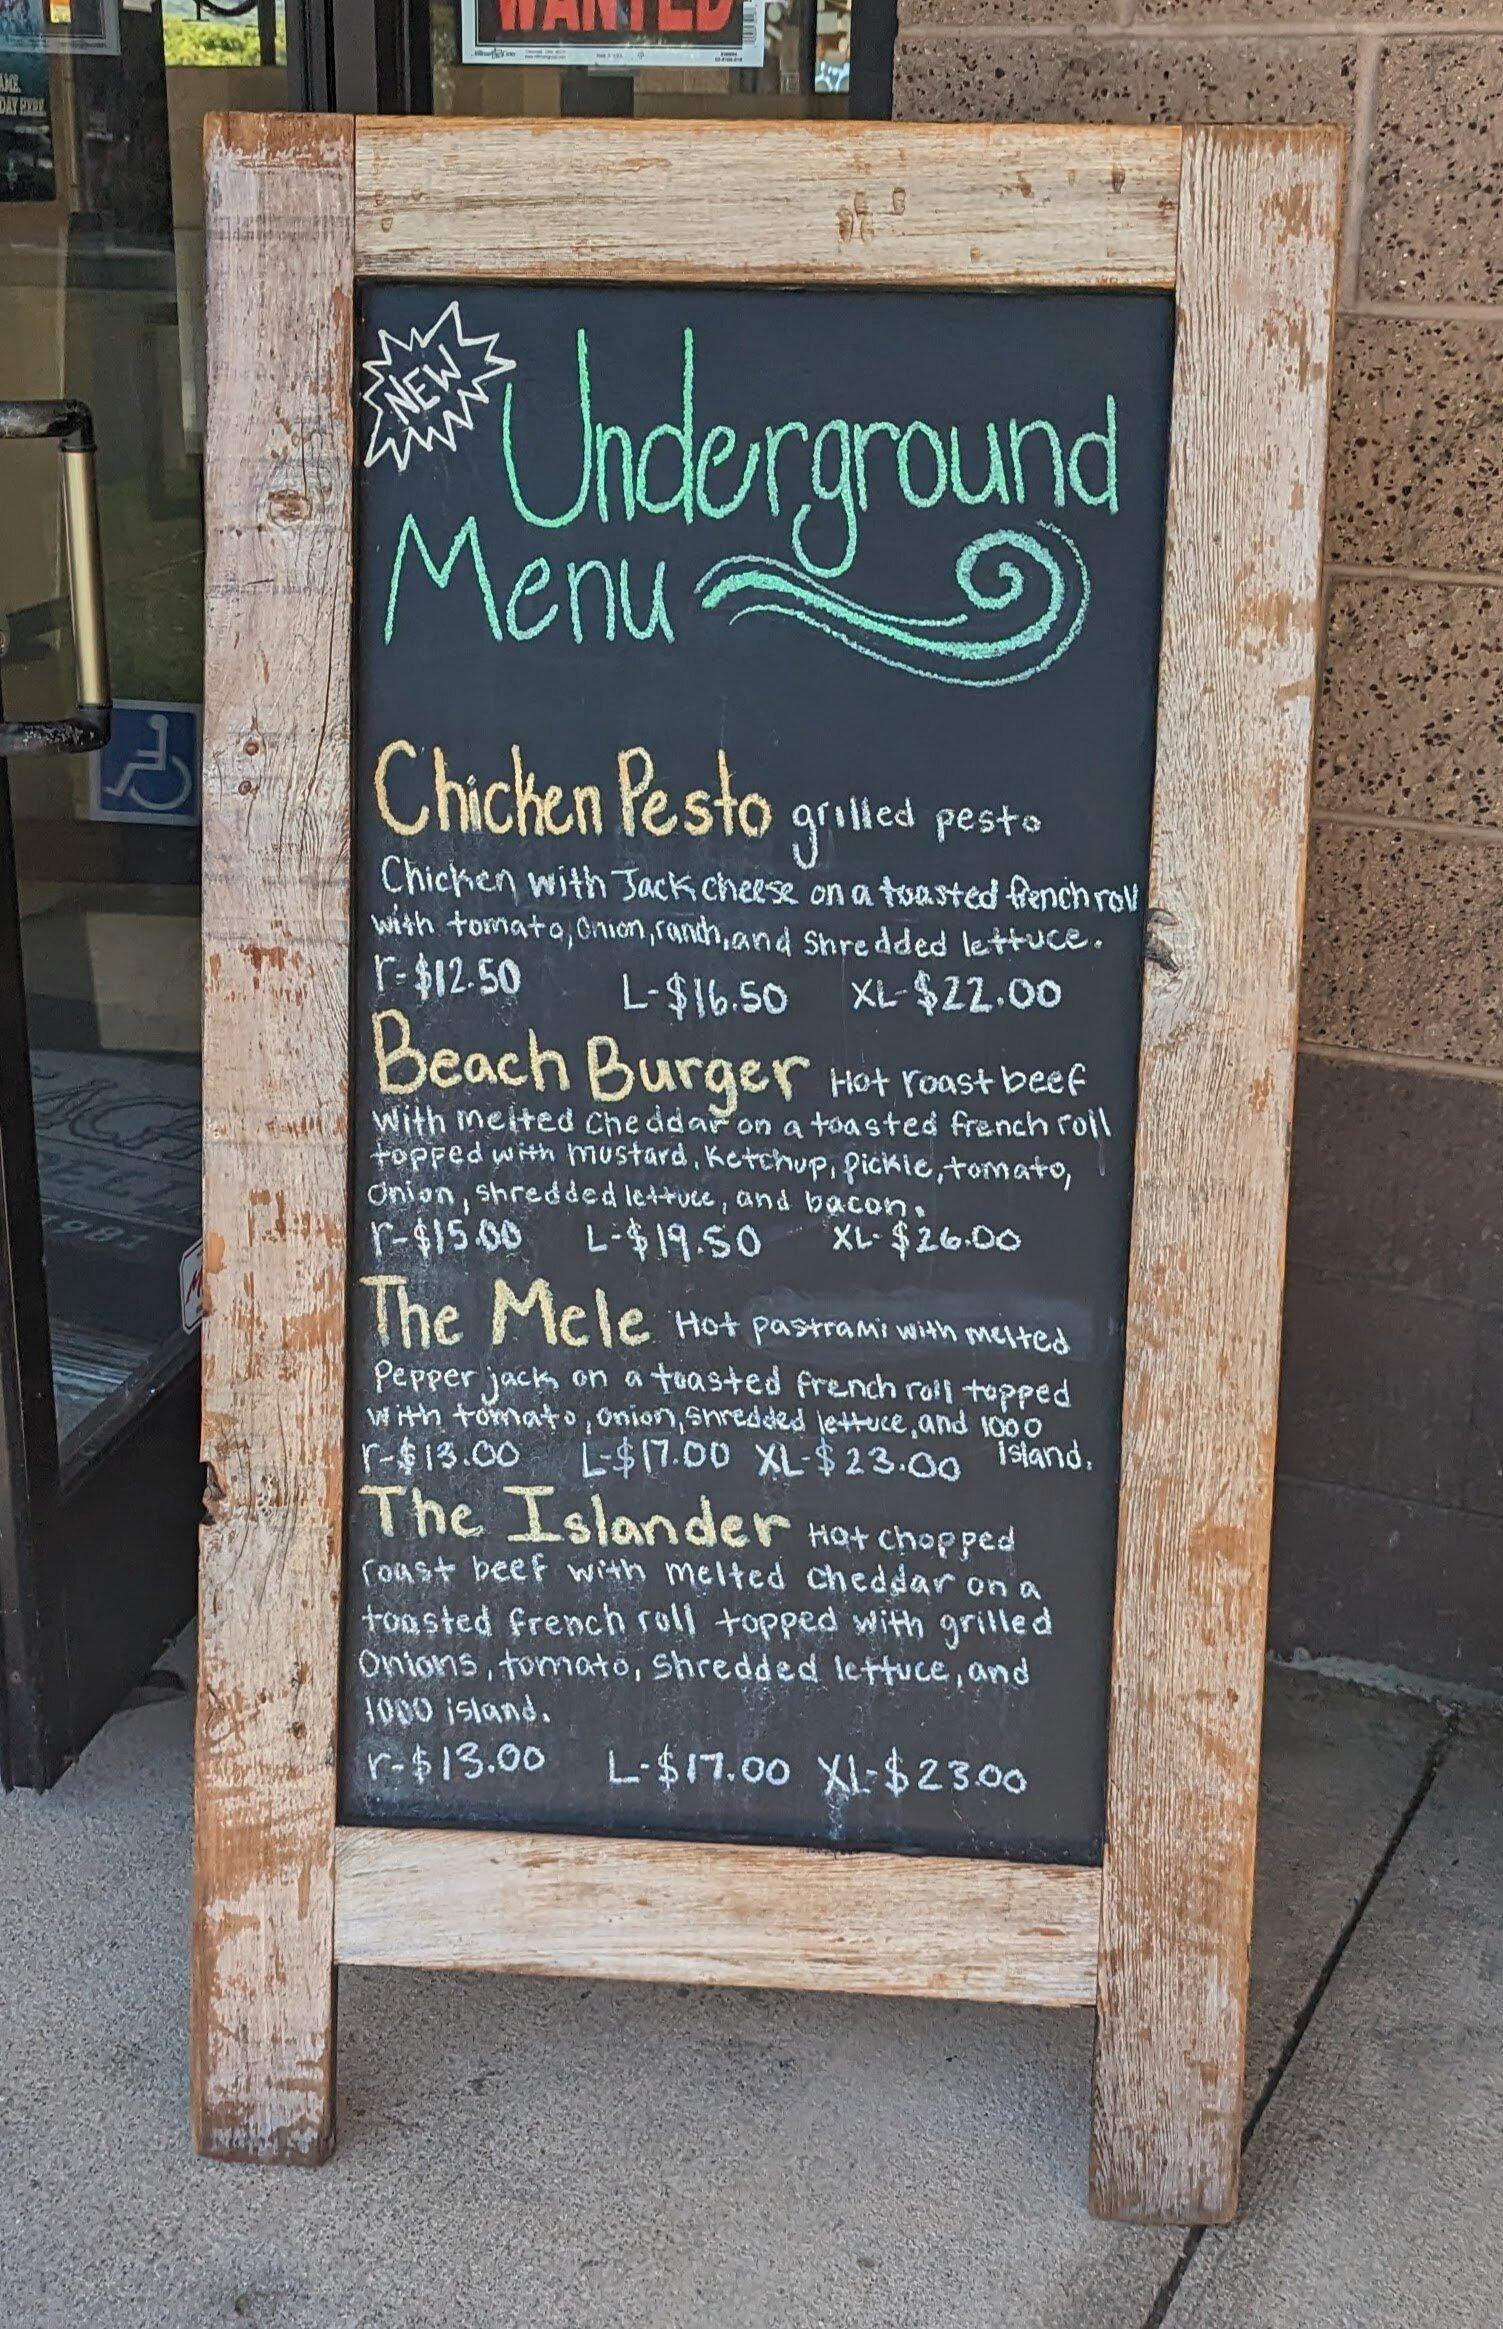 WANTED
AME.
DAY HERE
NEW
Underground
Menu
Chicken Pesto grilled pesto
Chicken with Jack cheese on a toasted french roll
with tomato, onion, ranch, and shredded lettuce.
r-$12.50 L-$16.50 XL-$22.00
Beach Burger Hot roast beef
with melted cheddar on a toasted french roll
topped with mustard, ketchup, pickle, tomato,
onion, shredded lettuce, and bacon.
r-$15.00 L-$19.50 XL-$26.00
The Mele Hot pastrami with melted
Pepper jack on a toasted french roll topped
with tomato, onion, shredded lettuce, and 1000
island.
r-$13.00 L-$17.00 XL-$23.00
The Islander Hot chopped
roast beef with melted cheddar on a
toasted french roll topped with grilled
onions, tomato, shredded lettuce, and
1000 island.
r-$13.00 L-$17.00 XL-$23.00